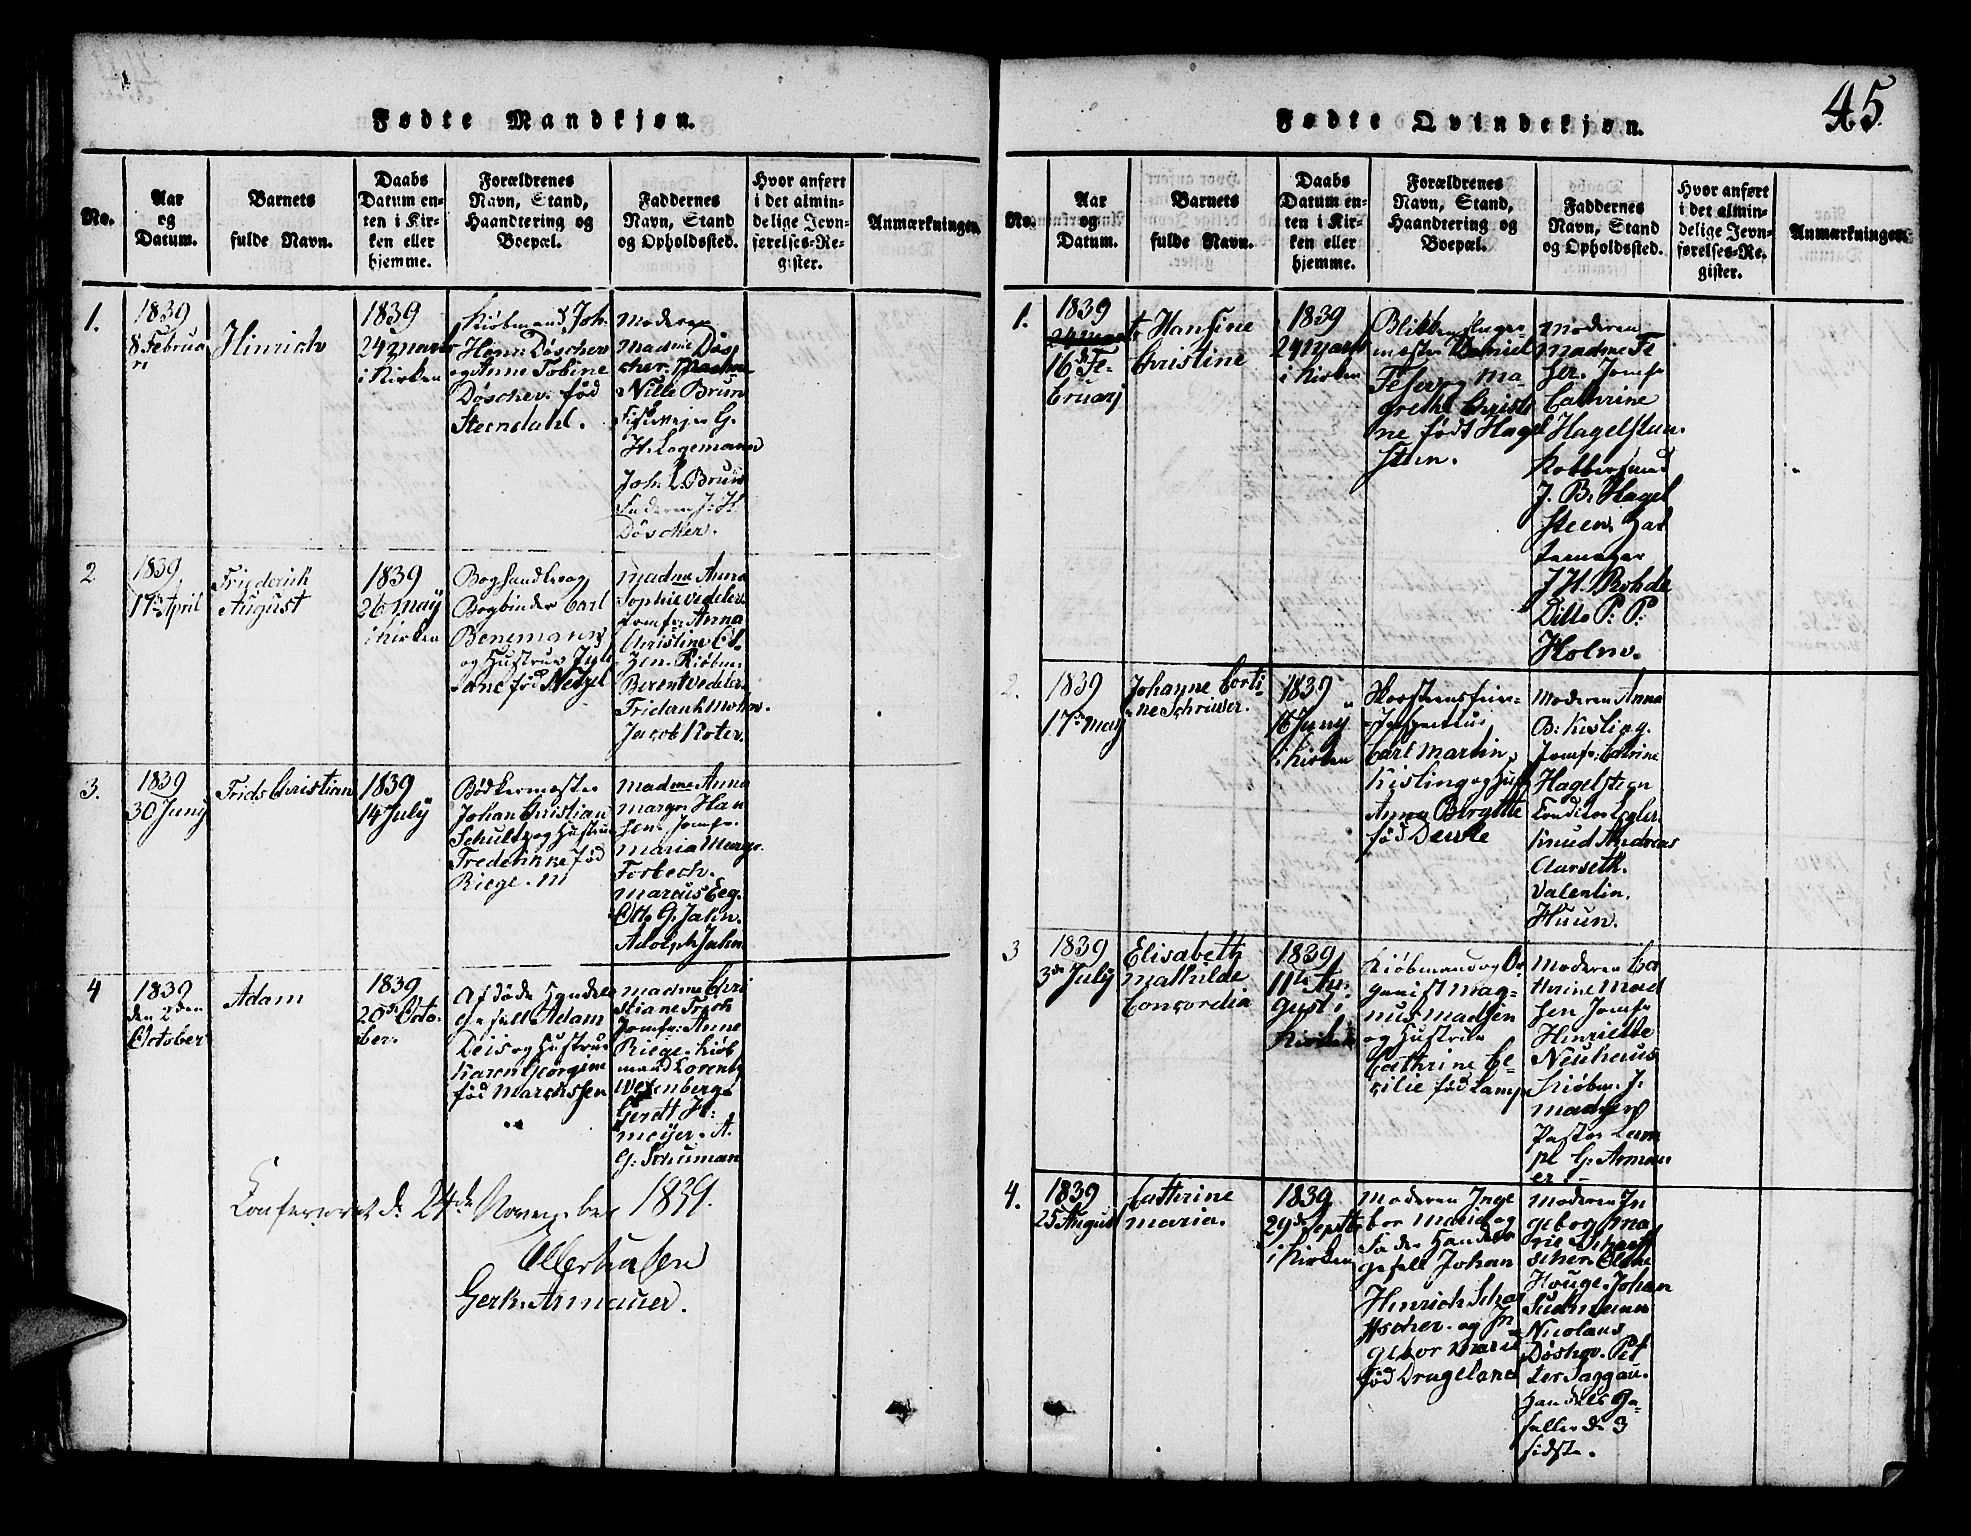 45.
Fødte Mandkjøn.
No.
Aar
og
Datum.
Barnets
fulde Navn.
Daabs
Datum en-
ten i Kir-
ken eller
hjemme.
Forældrenes
Navn, Stand,
Haandtering og
Boepæl.
Faddernes
Navn, Stand
og Opholdssted.
Hvor anført
i det almin-
delige Jevn-
førelses-Re-
gister.
Anmærkninger.
1.
1839
8 Februa
ri
Hinrich
1839
24 Marts
i Kirken
Kiøbmand Joh.
Henr. Døscher
og Anne Tobine
Døscher. fød
Steendahl.
Moderen
Madme Døs
cher.
Nille Brun
G.
H. Logemann
Joh. L. Brun
Faderen J. H.
Døscher.
2
1839
17 April
Friederik
August
1839
26 May
i Kirken
Boghandler og
Bogbinder Carl
Benemann
og Hustrue
fød Neitzel
Madme Anna
Sophie Vedeler.
Jomfr: Anna
Christine
Kiøbm.
Berent Vedeler.
Fridank Mohn.
Jacob Koter.
3.
1839
30 Juny
Frids Christian
1839
14 July
Bødkermester
Johan Christian
Schultz og Hustrue
Frederikke fød
Riege.
Madme Anna
Margr. Han
sen. Jomfr.
Maria Margr.
Forbech.
Marcus Eeg.
Otto G. Jahn.
Adolph Jahn
4
1839
den 2den
October
Adam
1839
20de Octo-
ber.
Afdøde Handels
gesell Adam
Deis og Hustrue
Karen Georgine
fød Marcussen
Madme Chri
stiane Frich
Jomfr: Anne
Riege. Kiøb
mand Lorentz
Wesenberg
Gerdt H:
Meyer. A.
G: Schuman
Confereret d. 24de November 1839.
Ellerhusen
Gerh. Armauer.
Fødte Qvindekjøn.
No.
Aar
og
Datum.
Barnets
fulde Navn.
Daabs
Datum en-
ten i Kir-
ken eller
hjemme.
Forældrenes
Navn, Stand,
Haandtering og
Boepæl.
Faddernes
Navn, Stand
og Opholdssted.
Hvor anført
i det almin-
delige Jevn-
førelses-Re-
gister.
Anmærkninger.
1.
1839
24 Marts
16de Fe-
bruarj
Hansine
Christine
1839
24 Marts
i Kirken
Blikkenslager
mester Daniel
Feser og Ma
grethe Christi
ne født Hagel
steen.
Moderen
Madme Fe
ser. Jomfr
Cathrine
Hagelsteen.
Kobbersmed
J. B. Hagel
steen.
J H. Rohde
Ditto P. P.
Holm.
2.
1839
17de May
Johanne Corti-
ne Schriwer.
1839
16 Juny
i Kirken
Skorsteensfeier-
Carl Martin
Kisling og Hust
Anna Birgitte
fød Dencke
Moderen Anna
B. Kisling.
Jomfr. Cathrine
Hagelsteen
Conditor Legler.
Knud Andreas
Aarseth.
Valentin
Huun.
3
1839
3de July
Elisabeth
Mathilde
Concordia
1839
11te Au-
gust i
Kirken
Kiøbmand og Or
ganist Mag-
nus Madsen
og Hustrue
Cathrine Ce-
cilie fød Lampe
Moderen Ca
thrine Mad
sen Jomfr
Henriette
Neuhaus
Kiøbm. J.
Madsen
Pastor Lam
pe G. Armau
er.
4.
1839
25 August
Cathrine
Maria.
1839
29de Septb
i Kirken
Moderen Inge
bor Marie og
Fader Handels
gesell Johan
Hinrich Schar
ffscher. og In-
gebor Marie
fød Drageland
Moderen In
geborg Ma
rie Scharff
scher. Oline
Houge. Johan
Sudmann
Nicolaus
Døsher. Pet
ter Saggau.
Handels Ge-
seller de 3
sidste.